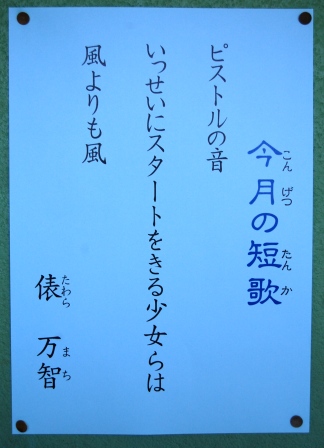 今月の短歌
こん げつ たん か
ピストルの音
いっせいにスタートをきる少女らは
風よりも風
俵 万智
たわら まち